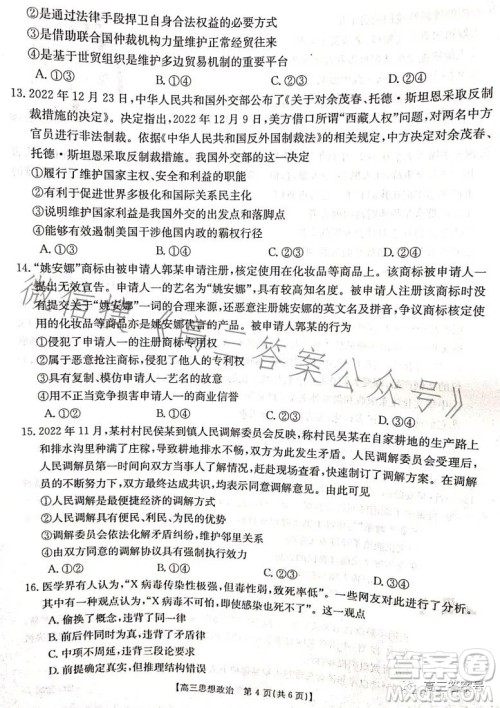 ②是通过法律手段捍卫自身合法权益的必要方式
③是借助联合国仲裁机构力量维护正常经贸往来
④是基于世贸组织的维护多边贸易机制的重要平台
A. ①③ B. ①④ C. ②③ D. ②④
13. 2022 年 12 月 23 日,中华人民共和国外交部公布了《关于对余茂春、托德·斯坦恩采取反制
裁措施的决定》。决定指出,2022 年 12 月 9 日,美方借口所谓“西藏人权”问题,对两名中方
官员进行非法制裁。依据《中华人民共和国反外国制裁法》的相关规定,中方决定对余茂春、
托德·斯坦恩采取反制裁措施。我国外交部的这一决定
①履行了维护国家主权、安全和利益的职能
②有利于促进世界多极化和国际关系民主化
③说明维护国家利益是我国外交的出发点和落脚点
④能够有效遏制美国干涉他国内政的霸权行径
A. ①③ B. ①④ C. ②③ D. ②④
14. “姚安娜”商标由被申请人郭某申请注册,核定使用在化妆品等商品上。该商标被申请人一
提出无效宣告。申请人一的艺名为“姚安娜”,具有较高知名度。被申请人郭某注册使用与
申请人一艺名“姚安娜”一词的合理来源,还恶意注册姚安娜的签名等多个商标,争议商标核
定使用的化妆品等商品亦是姚安娜代言的产品。被申请人郭某的行为
①侵犯了申请人一的注册商标专用权
②属于恶意注册,侵犯了他人的专利权
③具有复制、模仿申请人一艺名的故意
④用不正当竞争损害申请人一的商业信誉
A. ①③ B. ①④ C. ②③ D. ②④
15. 2022 年 11 月,某村村民侯某到镇人民调解委员会反映,称村民吴某在自家耕地的生产路上
和排水沟里种满了庄稼,导致耕地排水不畅,双方为此争吵不断,矛盾突出。
人民调解员快速了解情况、制定调解方案、现场实地查看、开展调解服务。
下,双方最终达成共识,均表示同意调解意见。由此可见
①人民调解是最便捷经济的调解方式
②人民调解具有便利、利民、为民的优势
③调解委员会依法化解矛盾,维护邻里关系
④由法定人员主持的调解是化解纠纷的
A. ①③ B. ①④ C. ②③ D. ②④
16. 医学界有人认为,“X 病毒传染性极强,但毒性弱,致死率低”。一些网友对此进行了分析。
其中有一种观点认为,“X 病毒不可怕,但也不能说它不可怕了”。这一观点
A. 前后均为真,违背了同一律
B. 前后均为假,违背了矛盾律
C. 前后均为假,违背了排中律
D. 前提真实正确,不违背逻辑规律
【高三思想政治 第 4 页(共 6 页)】
微信搜《高三答案公众号》